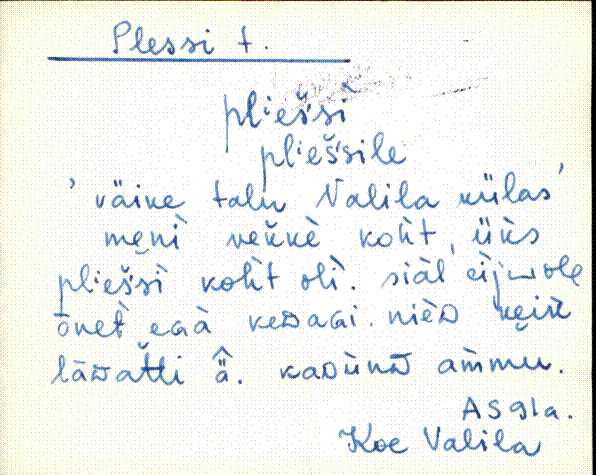 Plessi t.
pliešsi
pliešsile
' väike talu Valila külas '
menì veikkè koht, üks
pliešsì koht olì. siäl eijwole
õnet̀ egà kedagi. nièD keik
läDatti ä̂. kaDùnD am̀mu.
AS 91a.
Koe Valila